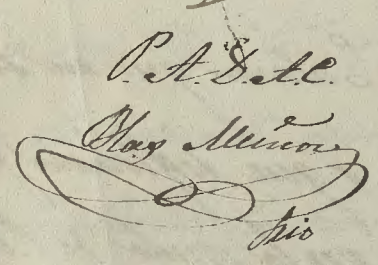 P. A. D. A. C.
Blas Muñoz
Srio